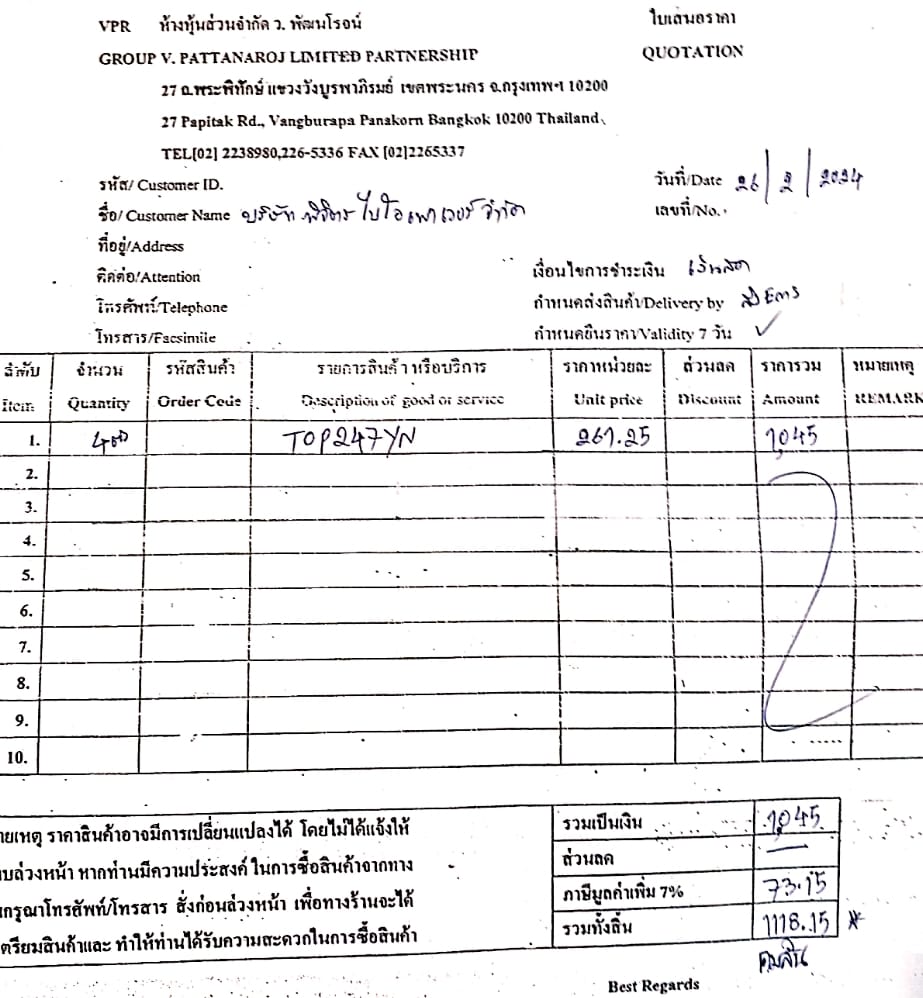 VPR ห้างหุ้นส่วนจำกัด ว. พัฒนโรจน์
ใบเสนอราคา
GROUP V. PATTANAROJ LIMITED PARTNERSHIP
QUOTATION
27 ถ.พระพิทักษ์ แขวงวังบูรพาภิรมย์ เขตพระนคร จ.กรุงเทพฯ 10200
27 Papitak Rd., Vangburapa Panakorn Bangkok 10200 Thailand.
TEL[02] 2238980,226-5336 FAX [02]2265337
รหัส/ Customer ID.
วันที่/Date 26/2/2024
ชื่อ/ Customer Name บริษัท พิจิตร ไบโอ เพาเวอร์ จำกัด
เลขที่/No.
ที่อยู่/Address
ติดต่อ/Attention
เงื่อนไขการชำระเงิน เงินสด
โทรศัพท์/Telephone
กำหนดส่งสินค้า/Delivery by
โทรสาร/Facsimile
กำหนดยืนราคา/Validity 7 วัน ✓
ลำดับ จำนวน รหัสสินค้า รายการสินค้า หรือบริการ ราคาหน่วยละ ส่วนลด ราคารวม หมายเหตุ
Item Quantity Order Code Description of good or service Unit price Discount Amount REMARK
1. TOP247YN 261.25 1,045
2.
3.
4.
5.
6.
7.
8.
9.
10.
ายเหตุ ราคาสินค้าอาจมีการเปลี่ยนแปลงได้ โดยไม่ได้แจ้งให้
รวมเป็นเงิน 1,045
บล่วงหน้า หากท่านมีความประสงค์ ในการซื้อสินค้าจากทาง
ส่วนลด —
นกรุณาโทรสัพท์/โทรสาร สั่งก่อนล่วงหน้า เพื่อทางร้านจะได้
ภาษีมูลค่าเพิ่ม 7% 73.15
ตรียมสินค้าและ ทำให้ท่านได้รับความสะดวกในการซื้อสินค้า
รวมทั้งสิ้น 1118.15 *
Best Regards